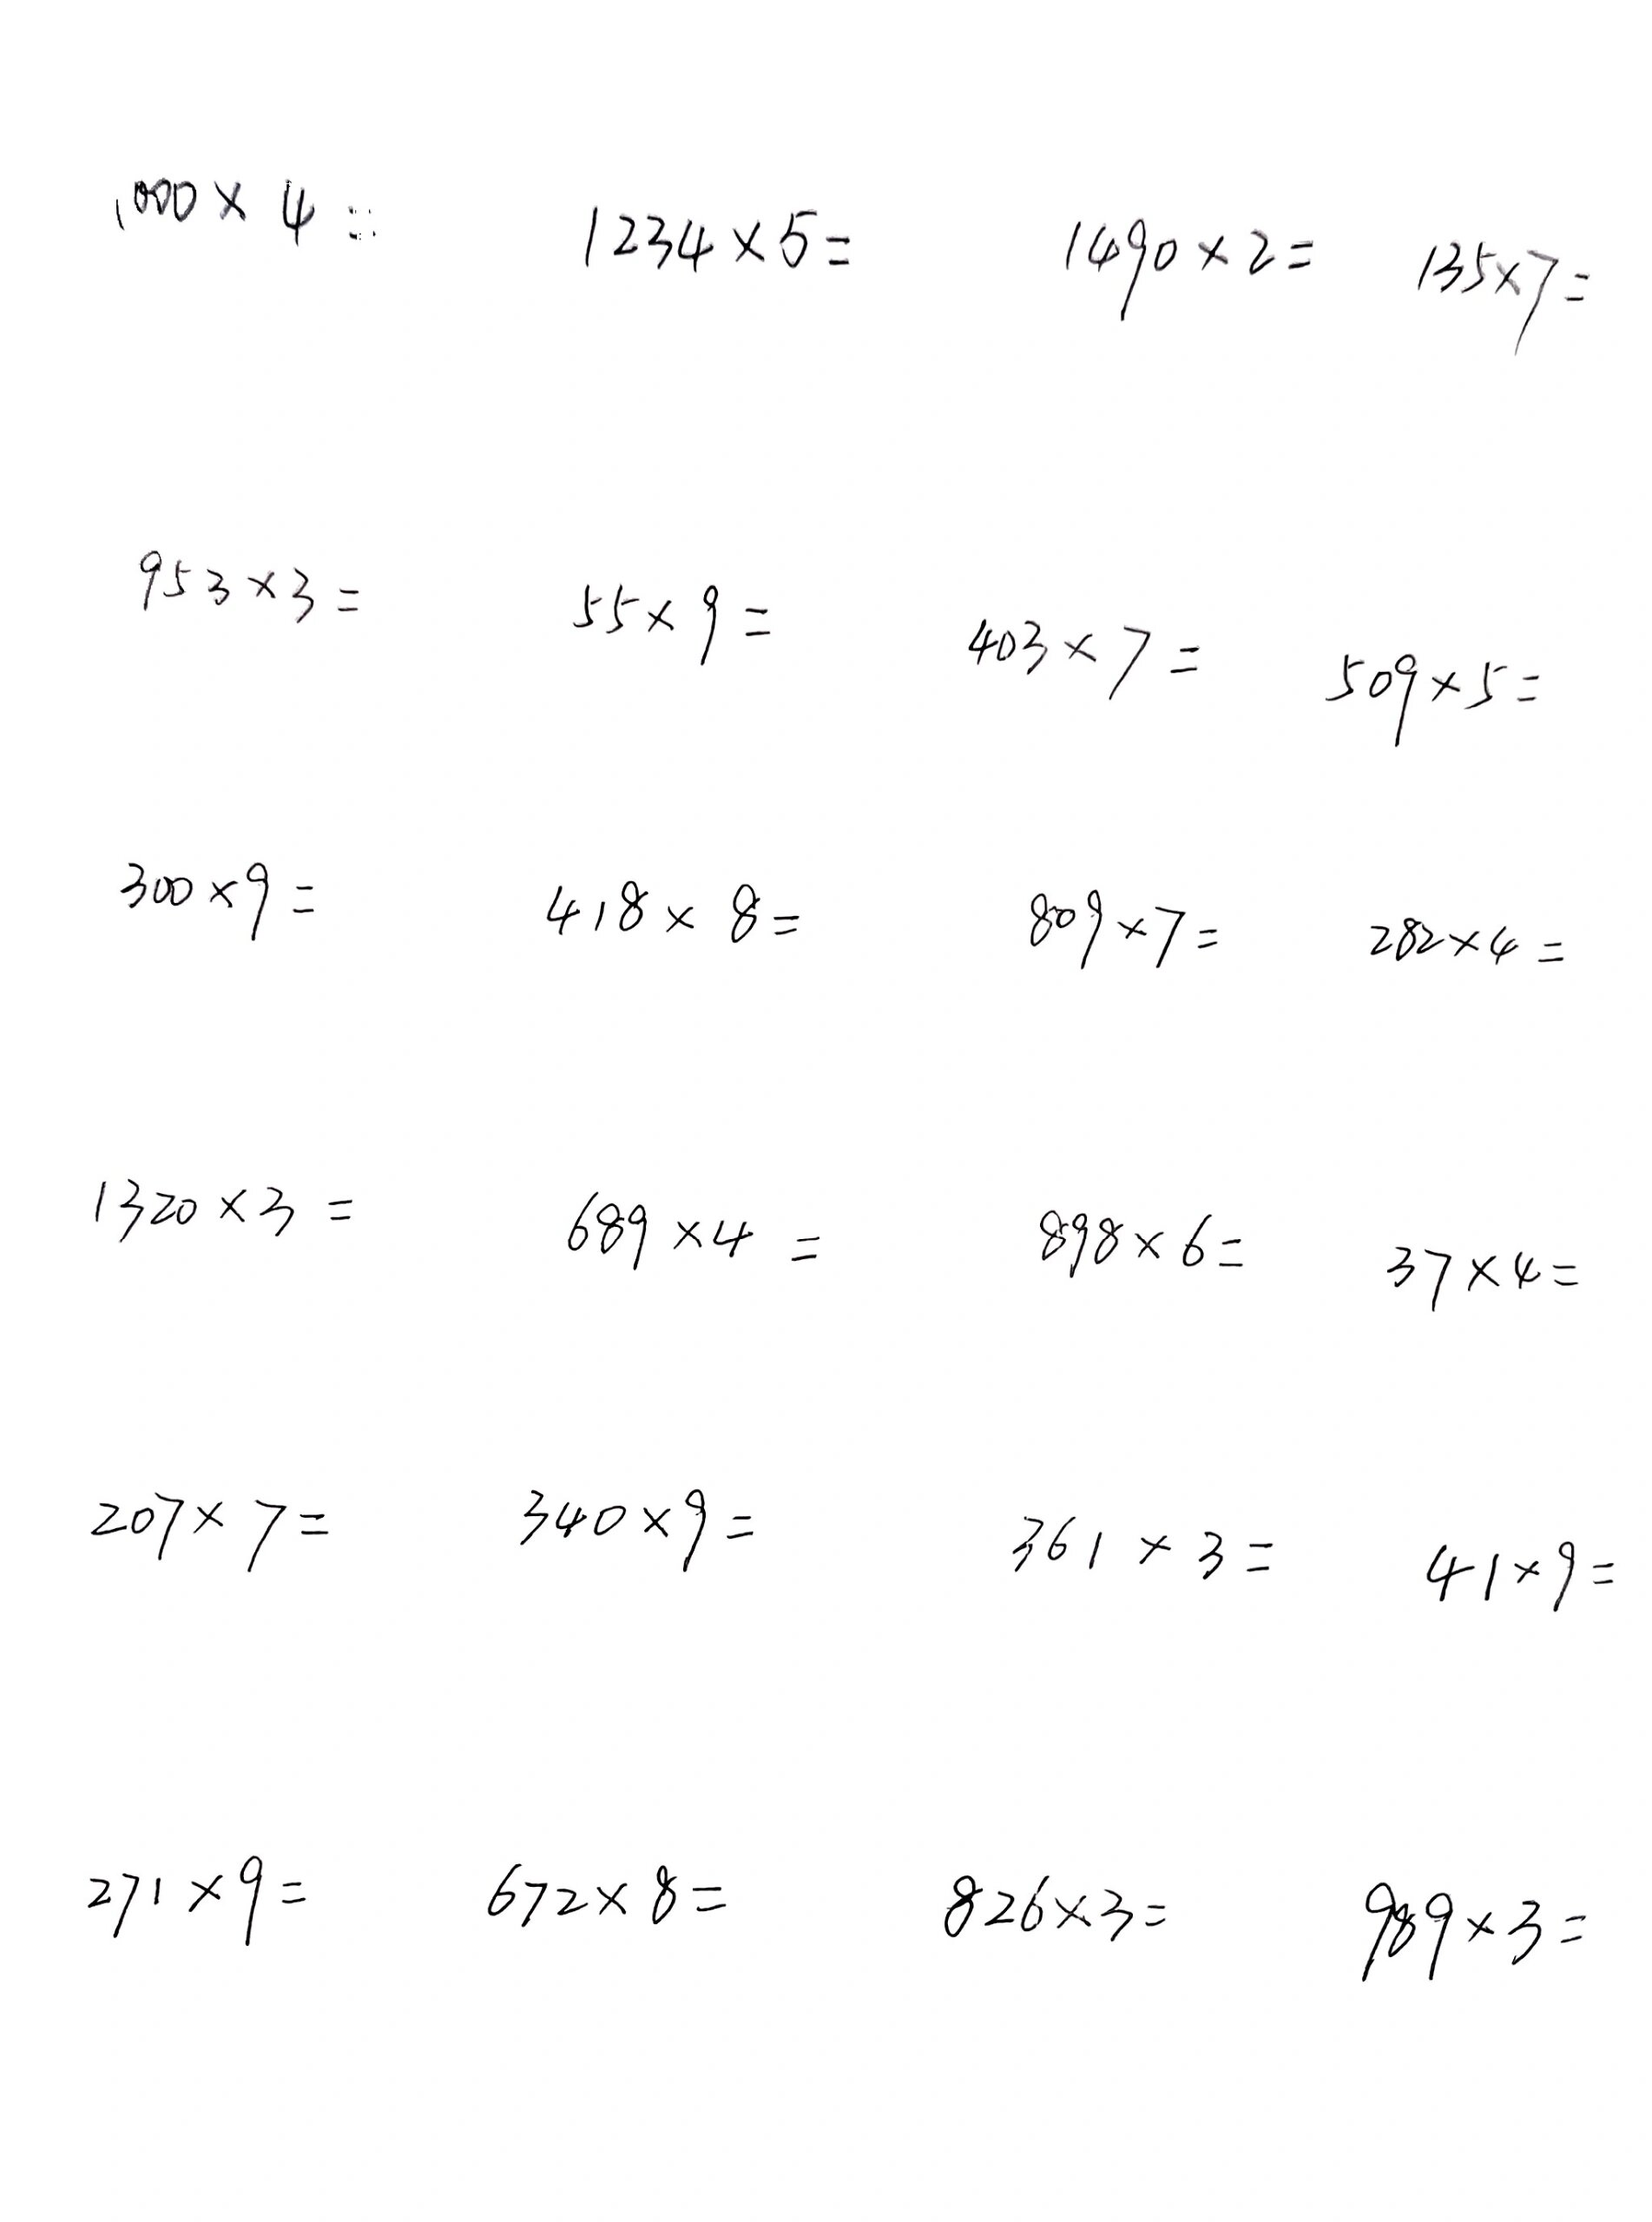 1000×4=  1234×5=  1490×2=  135×7=
953×3=  55×9=  403×7=  509×5=
300×9=  418×8=  809×7=  282×4=
1320×3=  689×4=  898×6=  37×4=
207×7=  340×9=  361×3=  41×9=
271×9=  672×8=  826×3=  989×3=